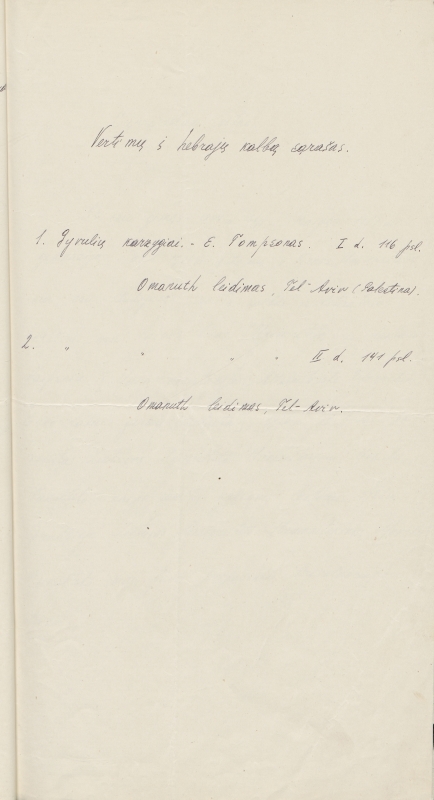 Vertimų į hebrajų kalbą sąrašas.
1. Gyvulių karažygiai. - E. Tompsonas. I d. 116 psl.
Omanuth leidimas, Tel-Aviv (Palestina).
2. " " " " II d. 141 psl.
Omanuth leidimas, Tel-Aviv.